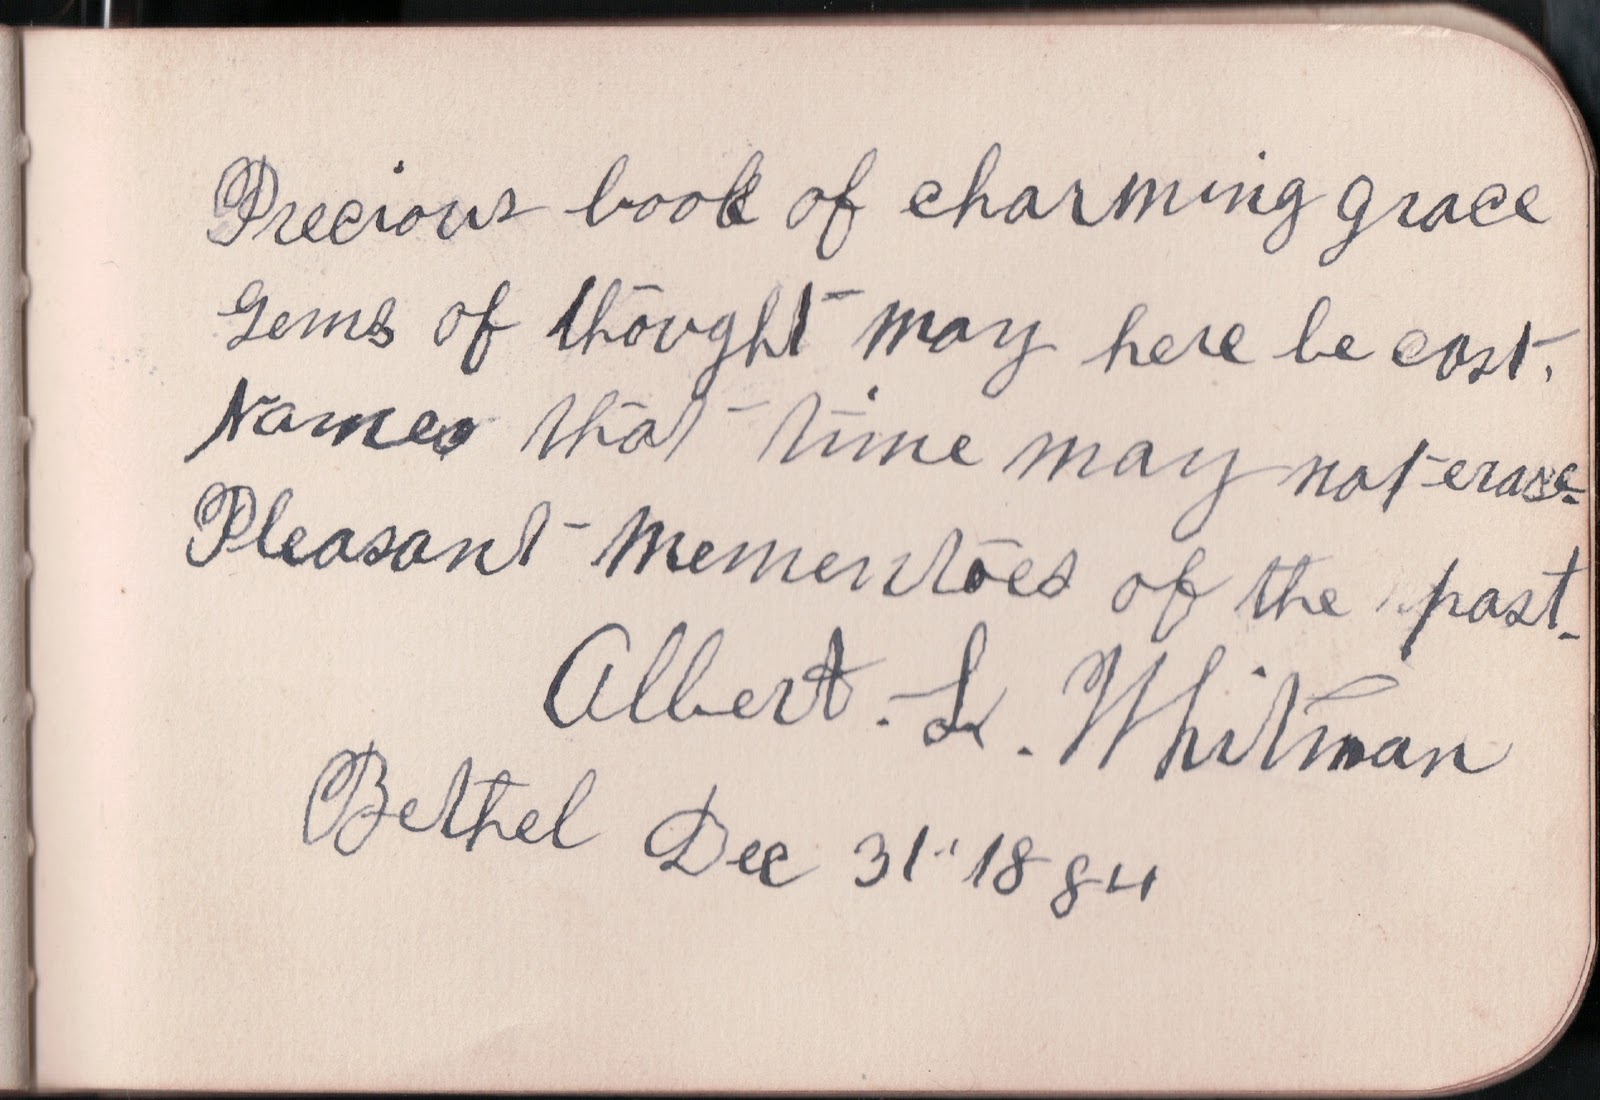 Precious book of charming grace
Gems of thought may here be cast.
Names that time may not erase
Pleasant mementoes of the past.
Albert. L. Whitman
Bethel Dec 31" 1884